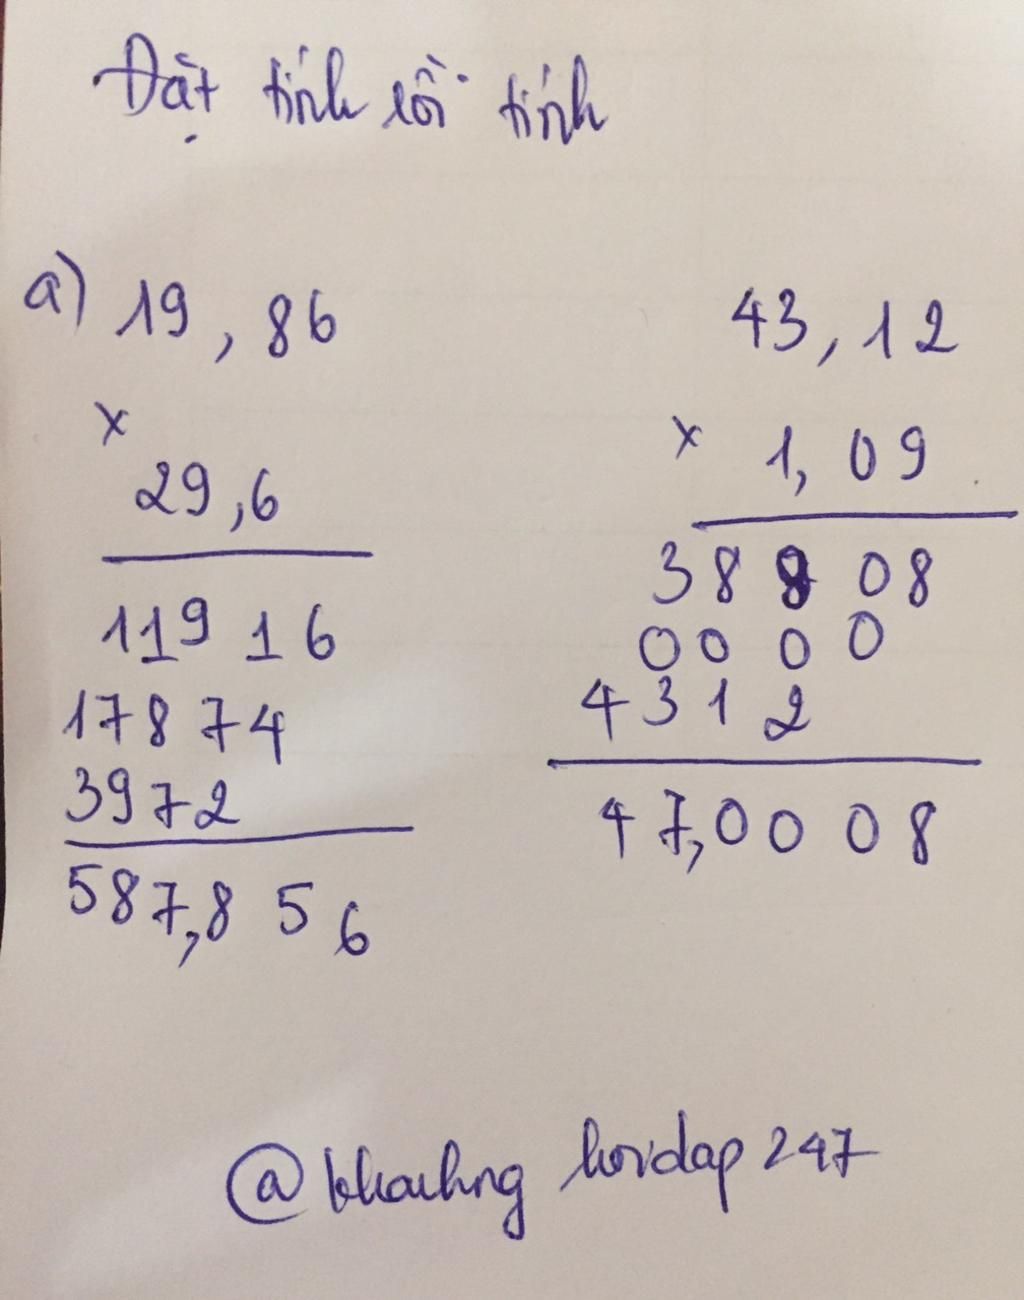 Đặt tính rồi tính
a) 19,86
x
29,6
11916
17874
3972
587,856
43,12
x 1,09
38808
0000
4312
47,0008
hoidap247